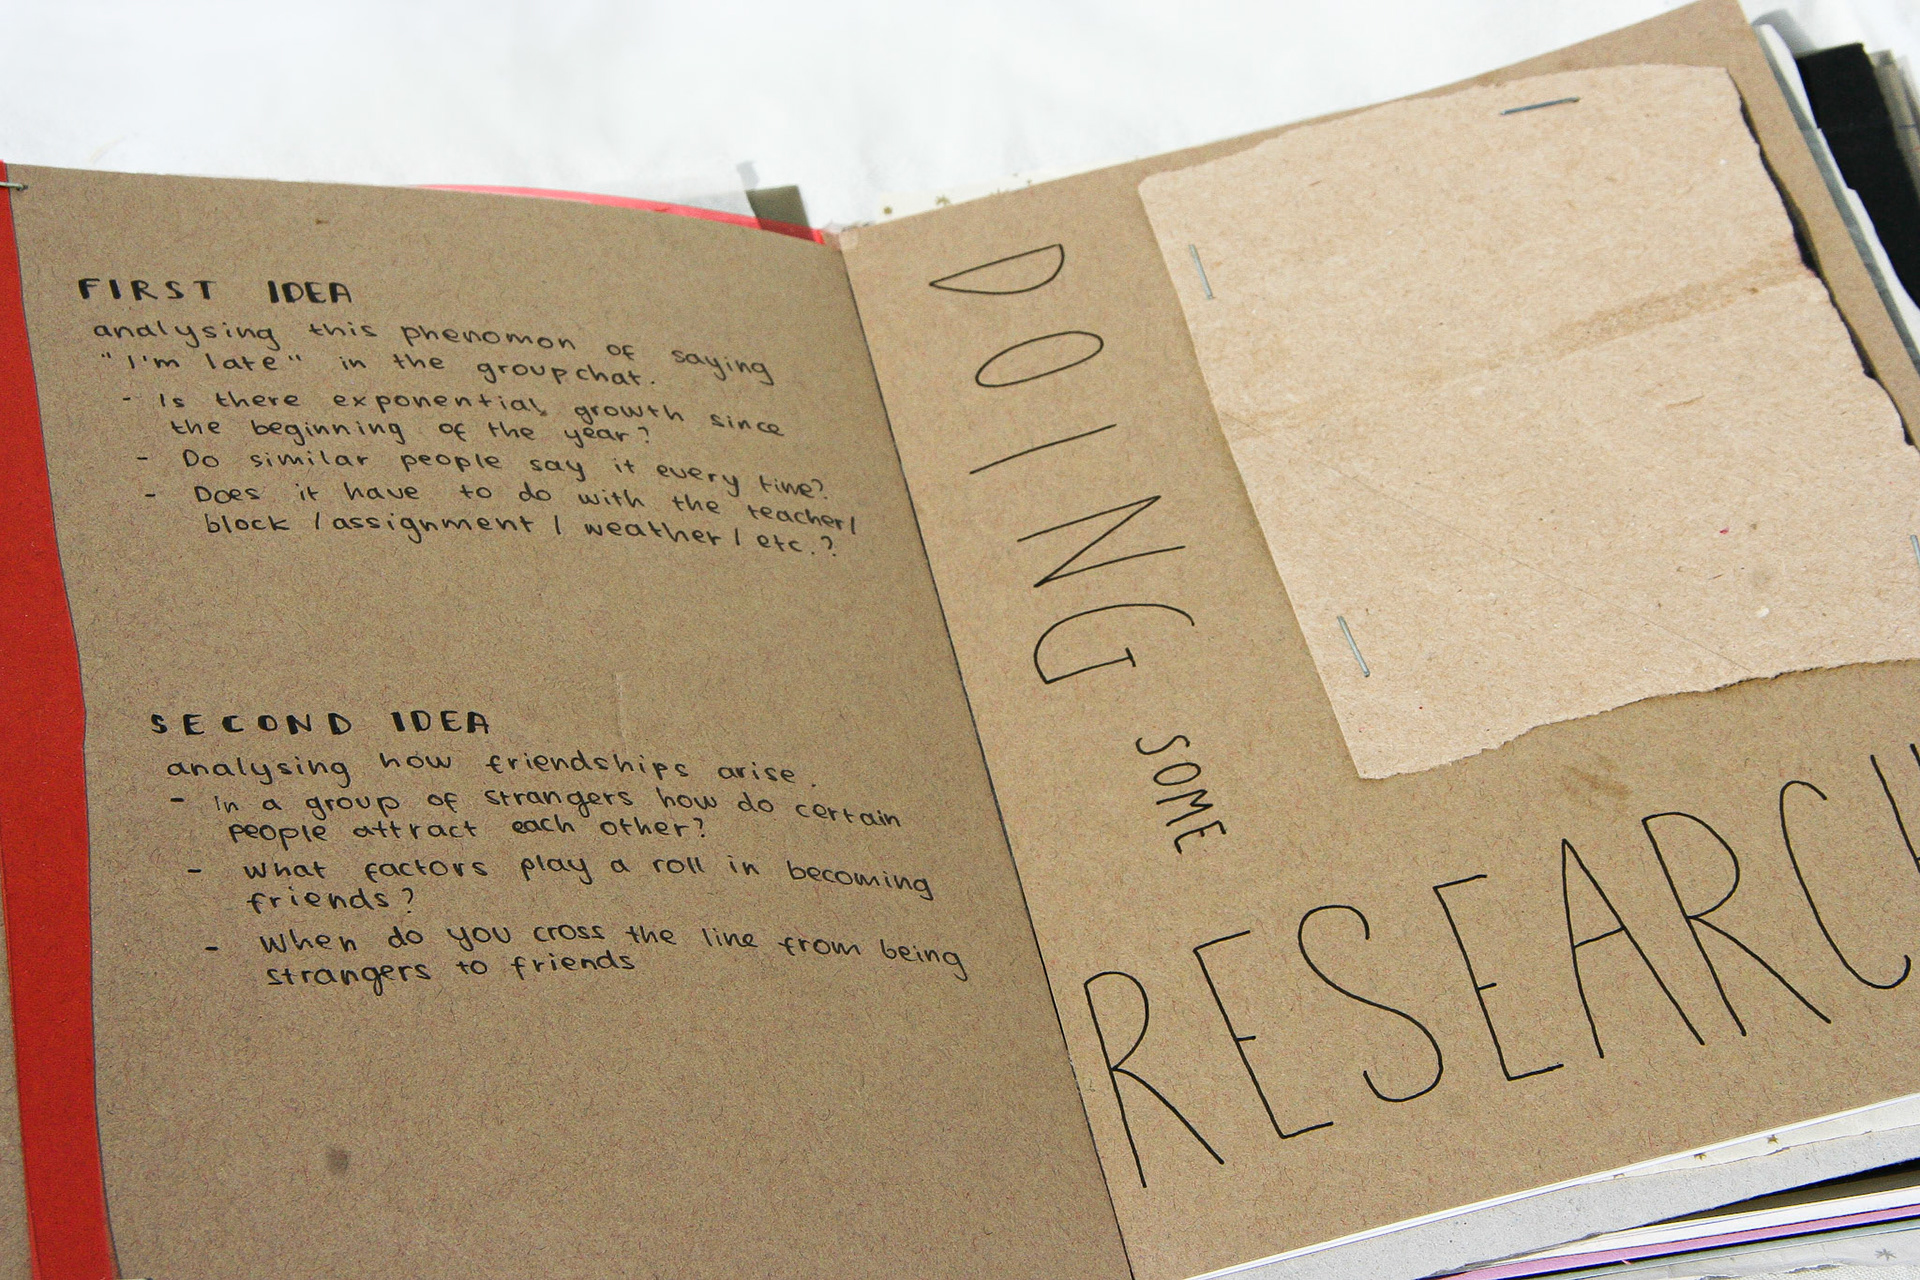 FIRST IDEA
analysing this phenomon of saying
"I'm late" in the groupchat.
- Is there exponential growth since
the beginning of the year?
- Do similar people say it every time?
- Does it have to do with the teacher/
block / assignment / weather / etc.?
SECOND IDEA
analysing how friendships arise.
- In a group of strangers how do certain
people attract each other?
- What factors play a roll in becoming
friends?
- When do you cross the line from being
strangers to friends
DOING
SOME
RESEARCH